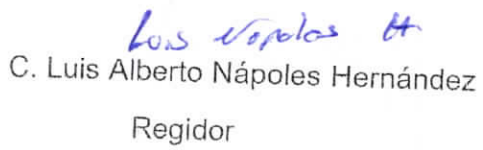 Luis Nápoles H.
C. Luis Alberto Nápoles Hernández
Regidor